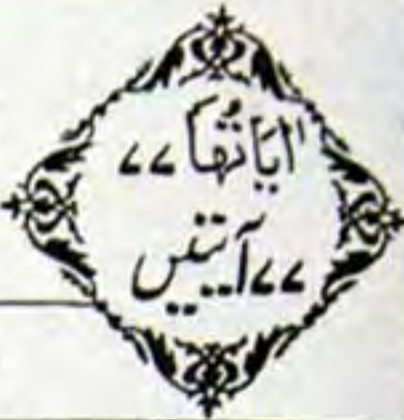 اٰیَاتُهَا ۷۷
۷۷ آیتیں